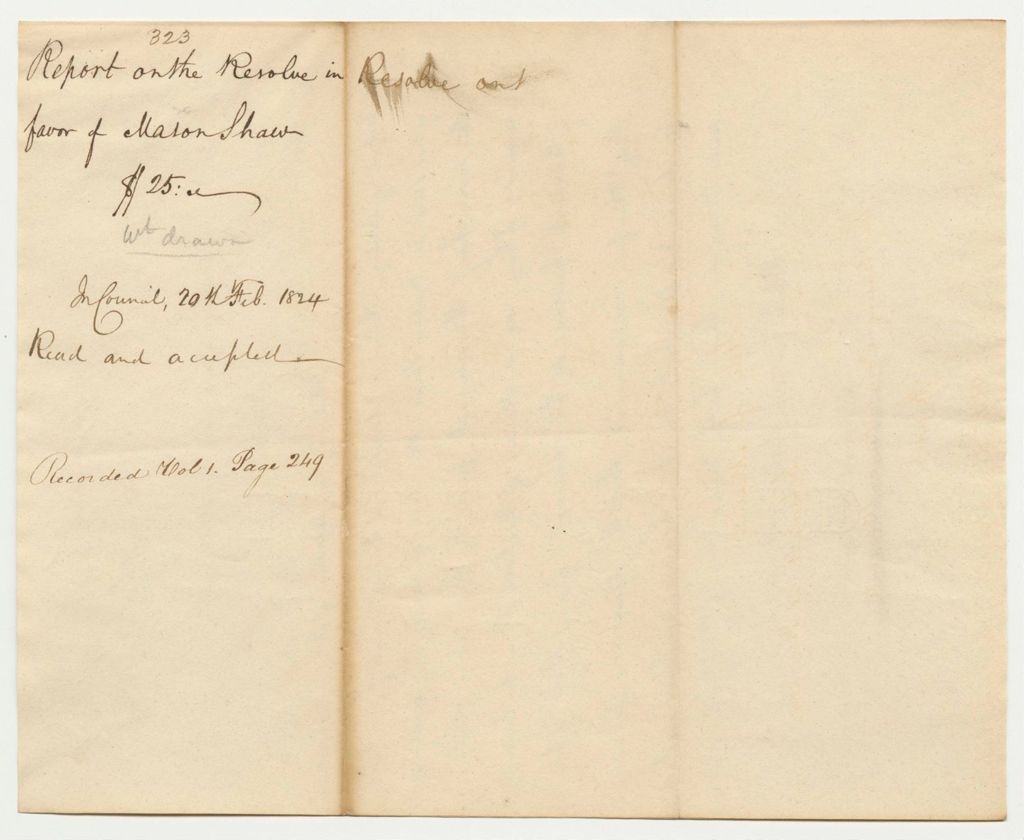 323
Report on the Resolve in
favor of Mason Shaw
$25:
Wt drawn
In Council, 20th Feb. 1824
Read and accepted
Recorded Vol 1. Page 249
Resolve on